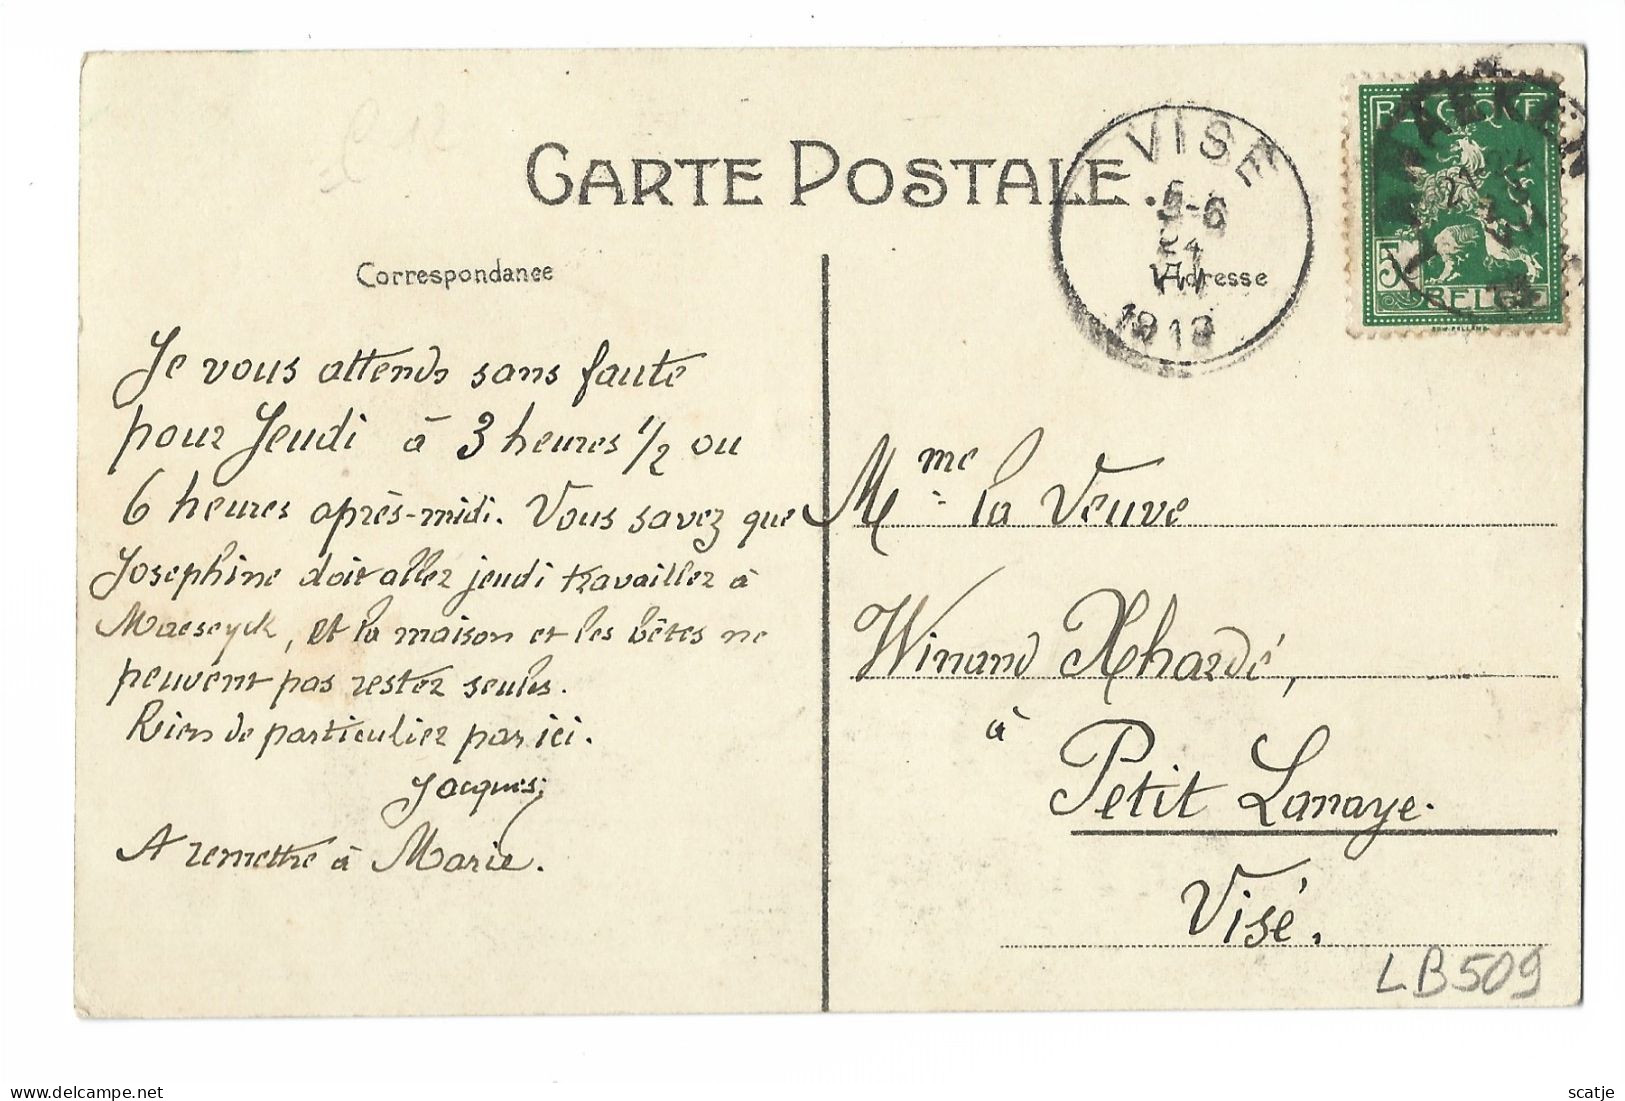 CARTE POSTALE
Correspondance
Adresse
Je vous attends sans faute
pour Jeudi à 3 heures 1/2 ou
6 heures après-midi. Vous savez que
Josephine doit aller jeudi travailler à
Maeseyck, et la maison et les bêtes ne
peuvent pas rester seules.
Rien de particulier par ici.
Jacques;
A remettre à Marie.
VISE
5-6
24
VII
1913
BELGIQUE
5
BELGIË
Mme la Veuve
Winand Xhardé,
à
Petit Lanaye.
Visé.
LB509
scatje